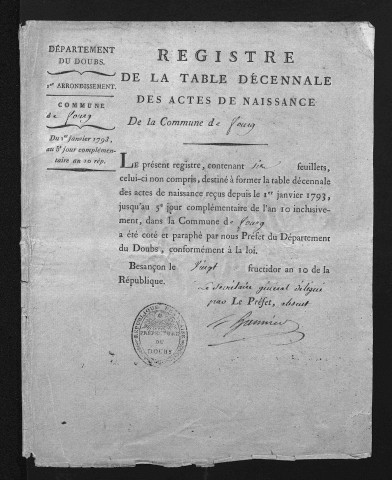 DÉPARTEMENT
DU DOUBS.
1er ARRONDISSEMENT.
COMMUNE
de fourg
Du 1er janvier 1793,
au 5e jour complémen-
taire an 10 rép.
REGISTRE
DE LA TABLE DÉCENNALE
DES ACTES DE NAISSANCE
De la Commune de fourg
LE présent registre, contenant six feuillets,
celui-ci non compris, destiné à former la table décennale
des actes de naissance reçus depuis le 1er janvier 1793,
jusqu'au 5e jour complémentaire de l'an 10 inclusive-
ment, dans la Commune de fourg
a été coté et paraphé par nous Préfet du Département
du Doubs, conformément à la loi.
Besançon le Vingt fructidor an 10 de la
République.
Le Secrétaire général délégué
pour Le Préfet, absent
PRÉFECTURE
DU
DOUBS